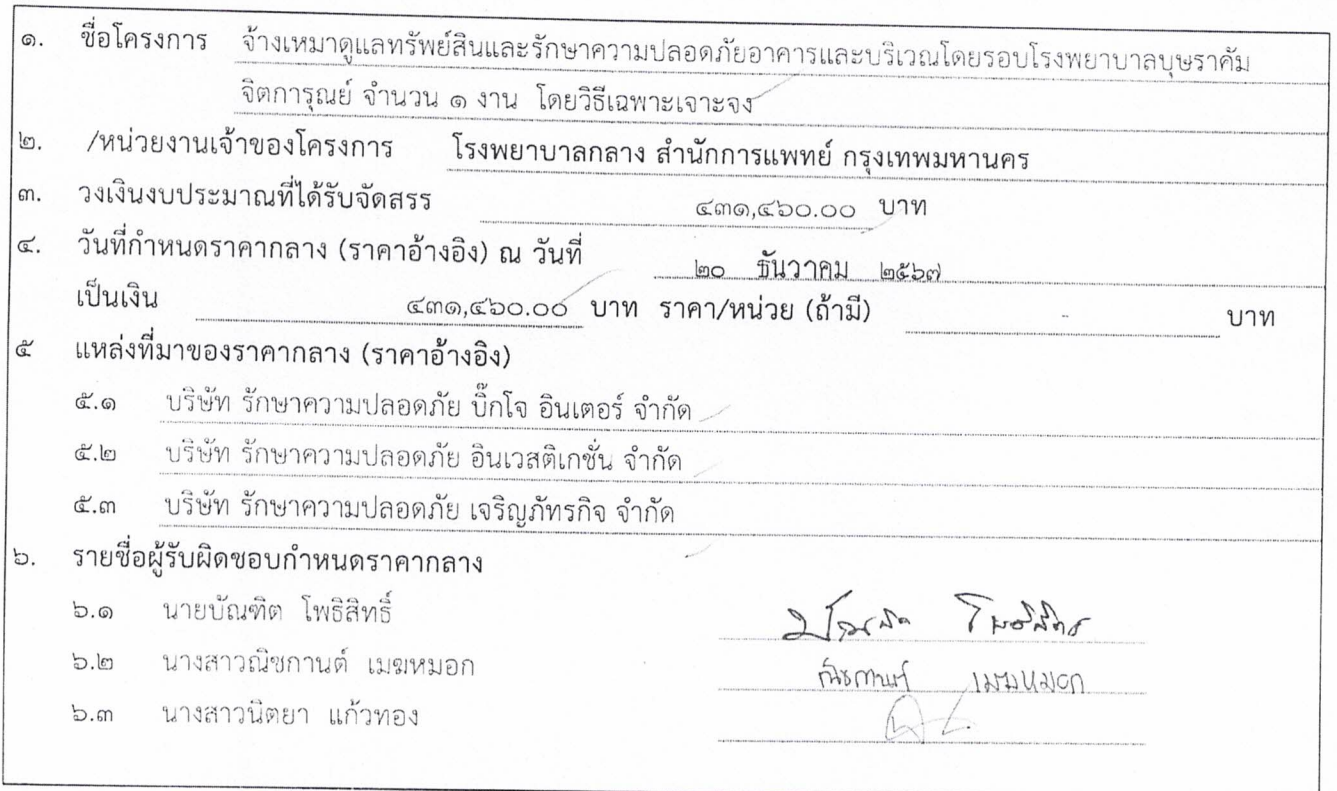 ๑. ชื่อโครงการ จ้างเหมาดูแลทรัพย์สินและรักษาความปลอดภัยอาคารและบริเวณโดยรอบโรงพยาบาลบุษราคัม
จิตการุณย์ จำนวน ๑ งาน โดยวิธีเฉพาะเจาะจง
๒. /หน่วยงานเจ้าของโครงการ โรงพยาบาลกลาง สำนักการแพทย์ กรุงเทพมหานคร
๓. วงเงินงบประมาณที่ได้รับจัดสรร ๔๓๑,๔๖๐.๐๐ บาท
๔. วันที่กำหนดราคากลาง (ราคาอ้างอิง) ณ วันที่ ๒๐ ธันวาคม ๒๕๖๗
เป็นเงิน ๔๓๑,๔๖๐.๐๐ บาท ราคา/หน่วย (ถ้ามี) - บาท
๕ แหล่งที่มาของราคากลาง (ราคาอ้างอิง)
๕.๑ บริษัท รักษาความปลอดภัย บิ๊กโจ อินเตอร์ จำกัด
๕.๒ บริษัท รักษาความปลอดภัย อินเวสติเกชั่น จำกัด
๕.๓ บริษัท รักษาความปลอดภัย เจริญภัทรกิจ จำกัด
๖. รายชื่อผู้รับผิดชอบกำหนดราคากลาง
๖.๑ นายบัณฑิต โพธิสิทธิ์
๖.๒ นางสาวณิชกานต์ เมฆหมอก ณิชกานต์ เมฆหมอก
๖.๓ นางสาวนิตยา แก้วทอง